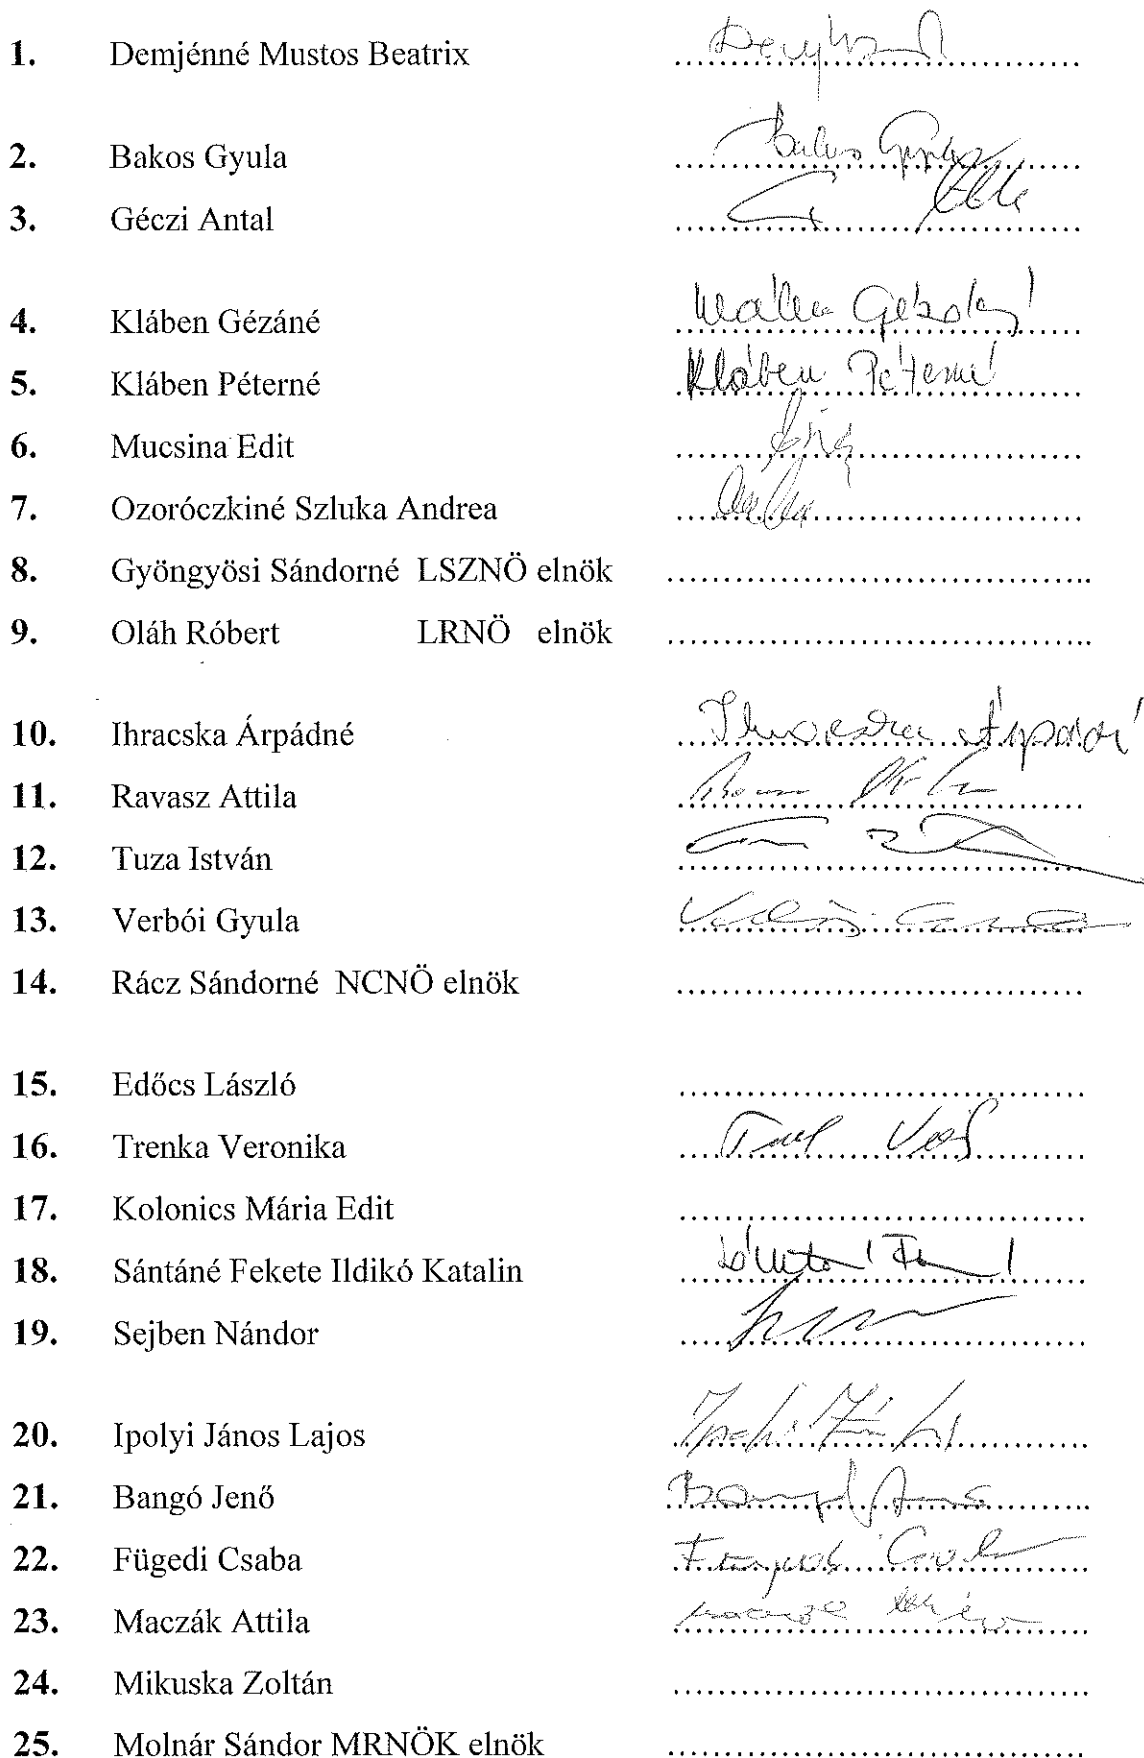 1. Demjénné Mustos Beatrix ........................................
2. Bakos Gyula Bakos Gyula
3. Géczi Antal ........................................
4. Kláben Gézáné ........................................
5. Kláben Péterné Kláben Péterné
6. Mucsina Edit ........................................
7. Ozoróczkiné Szluka Andrea ........................................
8. Gyöngyösi Sándorné LSZNÖ elnök ........................................
9. Oláh Róbert LRNÖ elnök ........................................
10. Ihracska Árpádné Ihracska Árpádné
11. Ravasz Attila ........................................
12. Tuza István ........................................
13. Verbói Gyula ........................................
14. Rácz Sándorné NCNÖ elnök ........................................
15. Edőcs László ........................................
16. Trenka Veronika ........................................
17. Kolonics Mária Edit ........................................
18. Sántáné Fekete Ildikó Katalin ........................................
19. Sejben Nándor ........................................
20. Ipolyi János Lajos ........................................
21. Bangó Jenő Bangó Jenő
22. Fügedi Csaba ........................................
23. Maczák Attila ........................................
24. Mikuska Zoltán ........................................
25. Molnár Sándor MRNÖK elnök ........................................